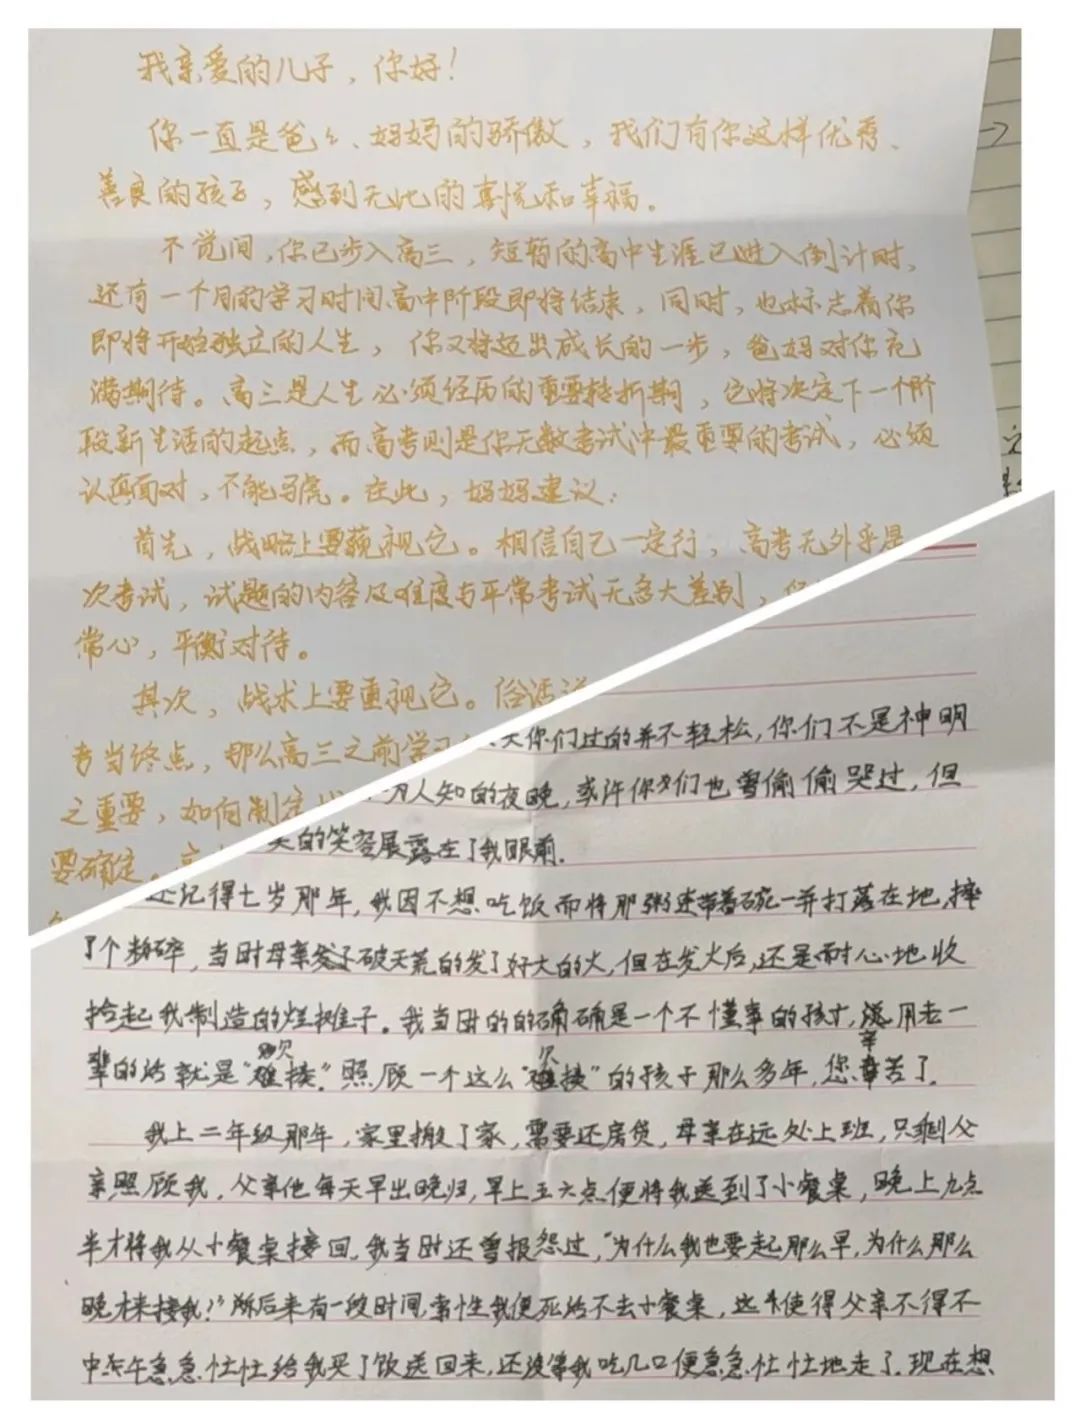 我亲爱的儿子，你好！
你一直是爸々、妈妈的骄傲，我们有你这样优秀、
善良的孩子，感到无比的喜悦和幸福。
不觉间，你已步入高三，短暂的高中生涯已进入倒计时，
还有一个月的学习时间高中阶段即将结束，同时，也标志着你
即将开始独立的人生，你又将迈出成长的一步，爸妈对你充
满期待。高三是人生必须经历的重要转折期，它将决定下一个阶
段新生活的起点，而高考则是你无数考试中最重要的考试，必须
认真面对，不能马虎。在此，妈妈建议：
首先，战略上要藐视它。相信自己一定行，高考无外乎是
次考试，试题的内容及难度与平常考试无多大差别，
常心，平衡对待。
其次，战术上要重视它。俗话说
考当终点，那么高三之前学习
之重要，如何制定
要确定。
天你们过的并不轻松，你们不是神明
为人知的夜晚，或许你们也曾偷偷哭过，但
的笑容展露在了我眼前。
还记得七岁那年，我因不想吃饭而将那粥连带着碗一并打落在地，摔
了个粉碎，当时母亲破天荒的发了好大的火，但在发火后，还是耐心地收
拾起我制造的烂摊子。我当时的的确确是一个不懂事的孩子，用老一
辈的话就是“欢揍”。照顾一个这么“欠揍”的孩子那么多年，您辛苦了。
我上二年级那年，家里搬了家，需要还房贷，母亲在远处上班，只剩父
亲照顾我，父亲他每天早出晚归，早上五六点便将我送到了小餐桌，晚上九点
半才将我从小餐桌接回，我当时还曾报怨过，“为什么我也要起那么早，为什么那么
晚才来接我？”后来有一段时间，索性我便死活不去小餐桌，这使得父亲不得不
中午急急忙忙给我买了饭送回来，还没等我吃几口便急急忙忙地走了。现在想